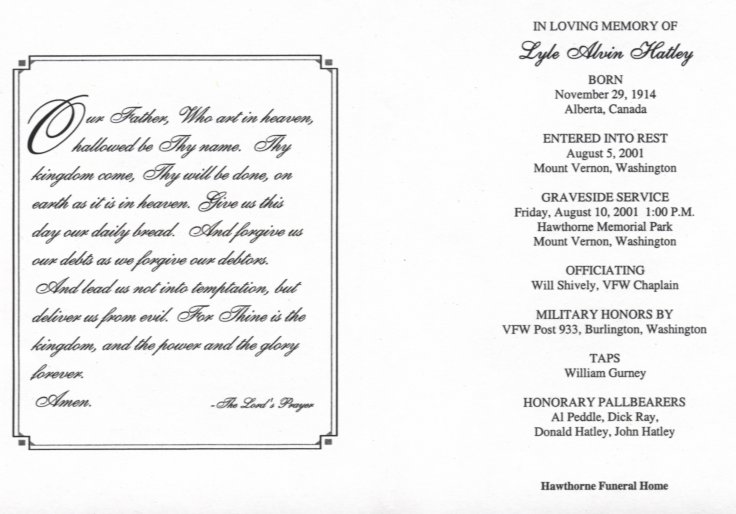 Our Father, Who art in heaven,
hallowed be Thy name. Thy
kingdom come, Thy will be done, on
earth as it is in heaven. Give us this
day our daily bread. And forgive us
our debts as we forgive our debtors.
And lead us not into temptation, but
deliver us from evil. For Thine is the
kingdom, and the power and the glory
forever.
Amen.
-The Lord's Prayer
IN LOVING MEMORY OF
Lyle Alvin Hatley
BORN
November 29, 1914
Alberta, Canada
ENTERED INTO REST
August 5, 2001
Mount Vernon, Washington
GRAVESIDE SERVICE
Friday, August 10, 2001 1:00 P.M.
Hawthorne Memorial Park
Mount Vernon, Washington
OFFICIATING
Will Shively, VFW Chaplain
MILITARY HONORS BY
VFW Post 933, Burlington, Washington
TAPS
William Gurney
HONORARY PALLBEARERS
Al Peddle, Dick Ray,
Donald Hatley, John Hatley
Hawthorne Funeral Home